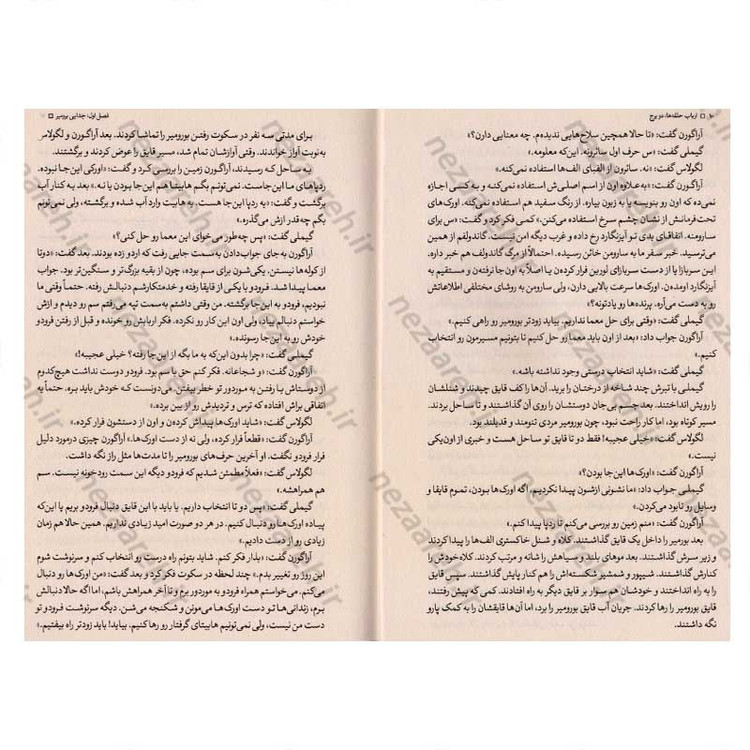 ۱۰ □ ارباب حلقه‌ها، دو برج
آراگورن گفت: «تا حالا همچین سلاح‌هایی ندیده‌م. چه معنایی دارن؟»
گیملی گفت: «س حرف اول سائرونه. این‌که معلومه.»
لگولاس گفت: «نه. سائرون از الفبای الف‌ها استفاده نمی‌کنه.»
آراگورن گفت: «به‌علاوه اون از اسم اصلی‌ش استفاده نمی‌کنه و به کسی اجازه
نمی‌ده که اون رو بنویسه یا به زبون بیاره. از رنگ سفید هم استفاده نمی‌کنه. اورک‌های
تحت فرمانش از نشان چشم سرخ استفاده می‌کنن.» کمی فکر کرد و گفت: «س برای
سارومنه. اتفاقای بدی تو آیزنگارد رخ داده و غرب دیگه امن نیست. گاندولفم از همین
می‌ترسید. خبر سفر ما به سارومن خائن رسیده. احتمالاً از مرگ گاندولف هم خبر داره.
این سربازا یا از دست سربازای لورین فرار کردن یا اصلاً به اون‌جا نرفته‌ن و مستقیم به
آیزنگارد اومده‌ن. اورک‌ها سرعت بالایی دارن، ولی سارومن به روشای مختلفی اطلاعاتش
رو به دست می‌آره. پرنده‌ها رو یادتونه؟»
گیملی گفت: «وقتی برای حل معما نداریم. بیاید زودتر بورومیر رو راهی کنیم.»
آراگورن جواب داد: «بعد از اون باید معما رو حل کنیم تا بتونیم مسیرمون رو انتخاب
کنیم.»
گیملی گفت: «شاید انتخاب درستی وجود نداشته باشه.»
گیملی با تبرش چند شاخه از درختان را برید. آن‌ها را کف قایق چیدند و شنلشان
را رویش انداختند. بعد جسم بی‌جان دوستشان را روی آن گذاشتند و تا ساحل بردند.
مسیر کوتاه بود، اما کار راحت نبود، چون بورومیر مردی تنومند و قدبلند بود.
آراگورن گفت: «خیلی عجیبه! فقط دو تا قایق تو ساحل هست و خبری از اون‌یکی
نیست.»
آراگورن گفت: «اورک‌ها این‌جا بودن؟»
گیملی جواب داد: «ما نشونی ازشون پیدا نکردیم. اگه اورک‌ها بودن، تموم قایقا و
وسایل رو نابود می‌کردن.»
آراگورن گفت: «منم زمین رو بررسی می‌کنم تا ردپا پیدا کنم.»
بعد بورومیر را داخل یک قایق گذاشتند. کلاه و شنل خاکستری الف‌ها را پیدا کردند
و زیر سرش گذاشتند. بعد موهای بلند و سیاهش را شانه و مرتب کردند. کلاه‌خودش را
کنارش گذاشتند. شیپور و شمشیر شکسته‌اش را هم کنار پایش گذاشتند. سپس قایق
را به راه انداختند و خودشان هم سوار بر قایق دیگر به راه افتادند. کمی که پیش رفتند،
قایق بورومیر را رها کردند. جریان آب قایق بورومیر را برد، اما آن‌ها قایقشان را به کمک پارو
نگه داشتند.
فصل اول: جدایی بورمیر □
برای مدتی سه نفر در سکوت رفتن بورومیر را تماشا کردند. بعد آراگورن و لگولاس
به‌نوبت آواز خواندند. وقتی آوازشان تمام شد، مسیر قایق را عوض کردند و برگشتند.
به ساحل که رسیدند، آراگورن زمین را بررسی کرد و گفت: «اورکی این‌جا نبوده.
ردپاهای ما این‌جاست. نمی‌تونم بگم هابیتا هم این‌جا بودن یا نه.» بعد به کنار آب
برگشت و گفت: «یه ردپا این‌جا هست. یه هابیت وارد آب شده و برگشته، ولی نمی‌تونم
بگم چه‌قدر ازش می‌گذره.»
گیملی گفت: «پس چه‌طور می‌خوای این معما رو حل کنی؟»
آراگورن به جای جواب‌دادن به سمت جایی رفت که اردو زده بودند. بعد گفت: «دوتا
از کوله‌ها نیستن. یکی‌شون برای سم بوده، چون از بقیه بزرگ‌تر و سنگین‌تر بود. جواب
معما پیدا شد. فرودو با یکی از قایقا رفته و خدمتکارشم دنبالش رفته. حتماً وقتی ما
نبودیم، فرودو به این‌جا برگشته. من وقتی داشتم به سمت تپه می‌رفتم سم رو دیدم و ازش
خواستم دنبالم بیاد، ولی اون این کار رو نکرده. فکر اربابش رو خونده و قبل از رفتن فرودو
خودش رو به این‌جا رسونده.»
گیملی گفت: «چرا بدون این‌که به ما بگه از این‌جا رفته؟ خیلی عجیبه!»
آراگورن گفت: «و شجاعانه. فکر کنم حق با سم بود. فرودو دوست نداشت هیچ‌کدوم
از دوستاش با رفتن به موردور تو خطر بیفتن. می‌دونست که خودش باید بره. حتماً یه
اتفاقی براش افتاده که ترس و تردیدش رو از بین برده.»
لگولاس گفت: «شاید اورک‌ها پیداش کرده‌ن و اون از دستشون فرار کرده.»
آراگورن گفت: «قطعاً فرار کرده، ولی نه از دست اورک‌ها.» آراگورن چیزی درمورد دلیل
فرار فرودو نگفت. او آخرین حرف‌های بورومیر را تا مدت‌ها مثل راز نگه داشت.
لگولاس گفت: «فعلاً مطمئن شدیم که فرودو دیگه این سمت رودخونه نیست. سم
هم همراهشه.»
گیملی گفت: «پس دو تا انتخاب داریم. یا باید با این قایق دنبال فرودو بریم یا این‌که
پیاده اورک‌ها رو دنبال کنیم. در هر دو صورت امید زیادی نداریم. همین حالا هم زمان
زیادی رو از دست دادیم.»
آراگورن گفت: «بذار فکر کنم. شاید بتونم راه درست رو انتخاب کنم و سرنوشت شوم
این روز رو تغییر بدم.» چند لحظه در سکوت فکر کرد و بعد گفت: «من اورک‌ها رو دنبال
می‌کنم. می‌خواستم همراه فرودو به موردور برم و تا آخر همراهش باشم، اما اگه حالا دنبالش
برم، زندانی‌ها تو دست اورک‌ها می‌مونن و شکنجه می‌شن. دیگه سرنوشت فرودو تو
دست من نیست، ولی نمی‌تونیم هابیتای گرفتار رو رها کنیم. بیاید! باید زودتر راه بیفتیم.»
nezaareh.ir